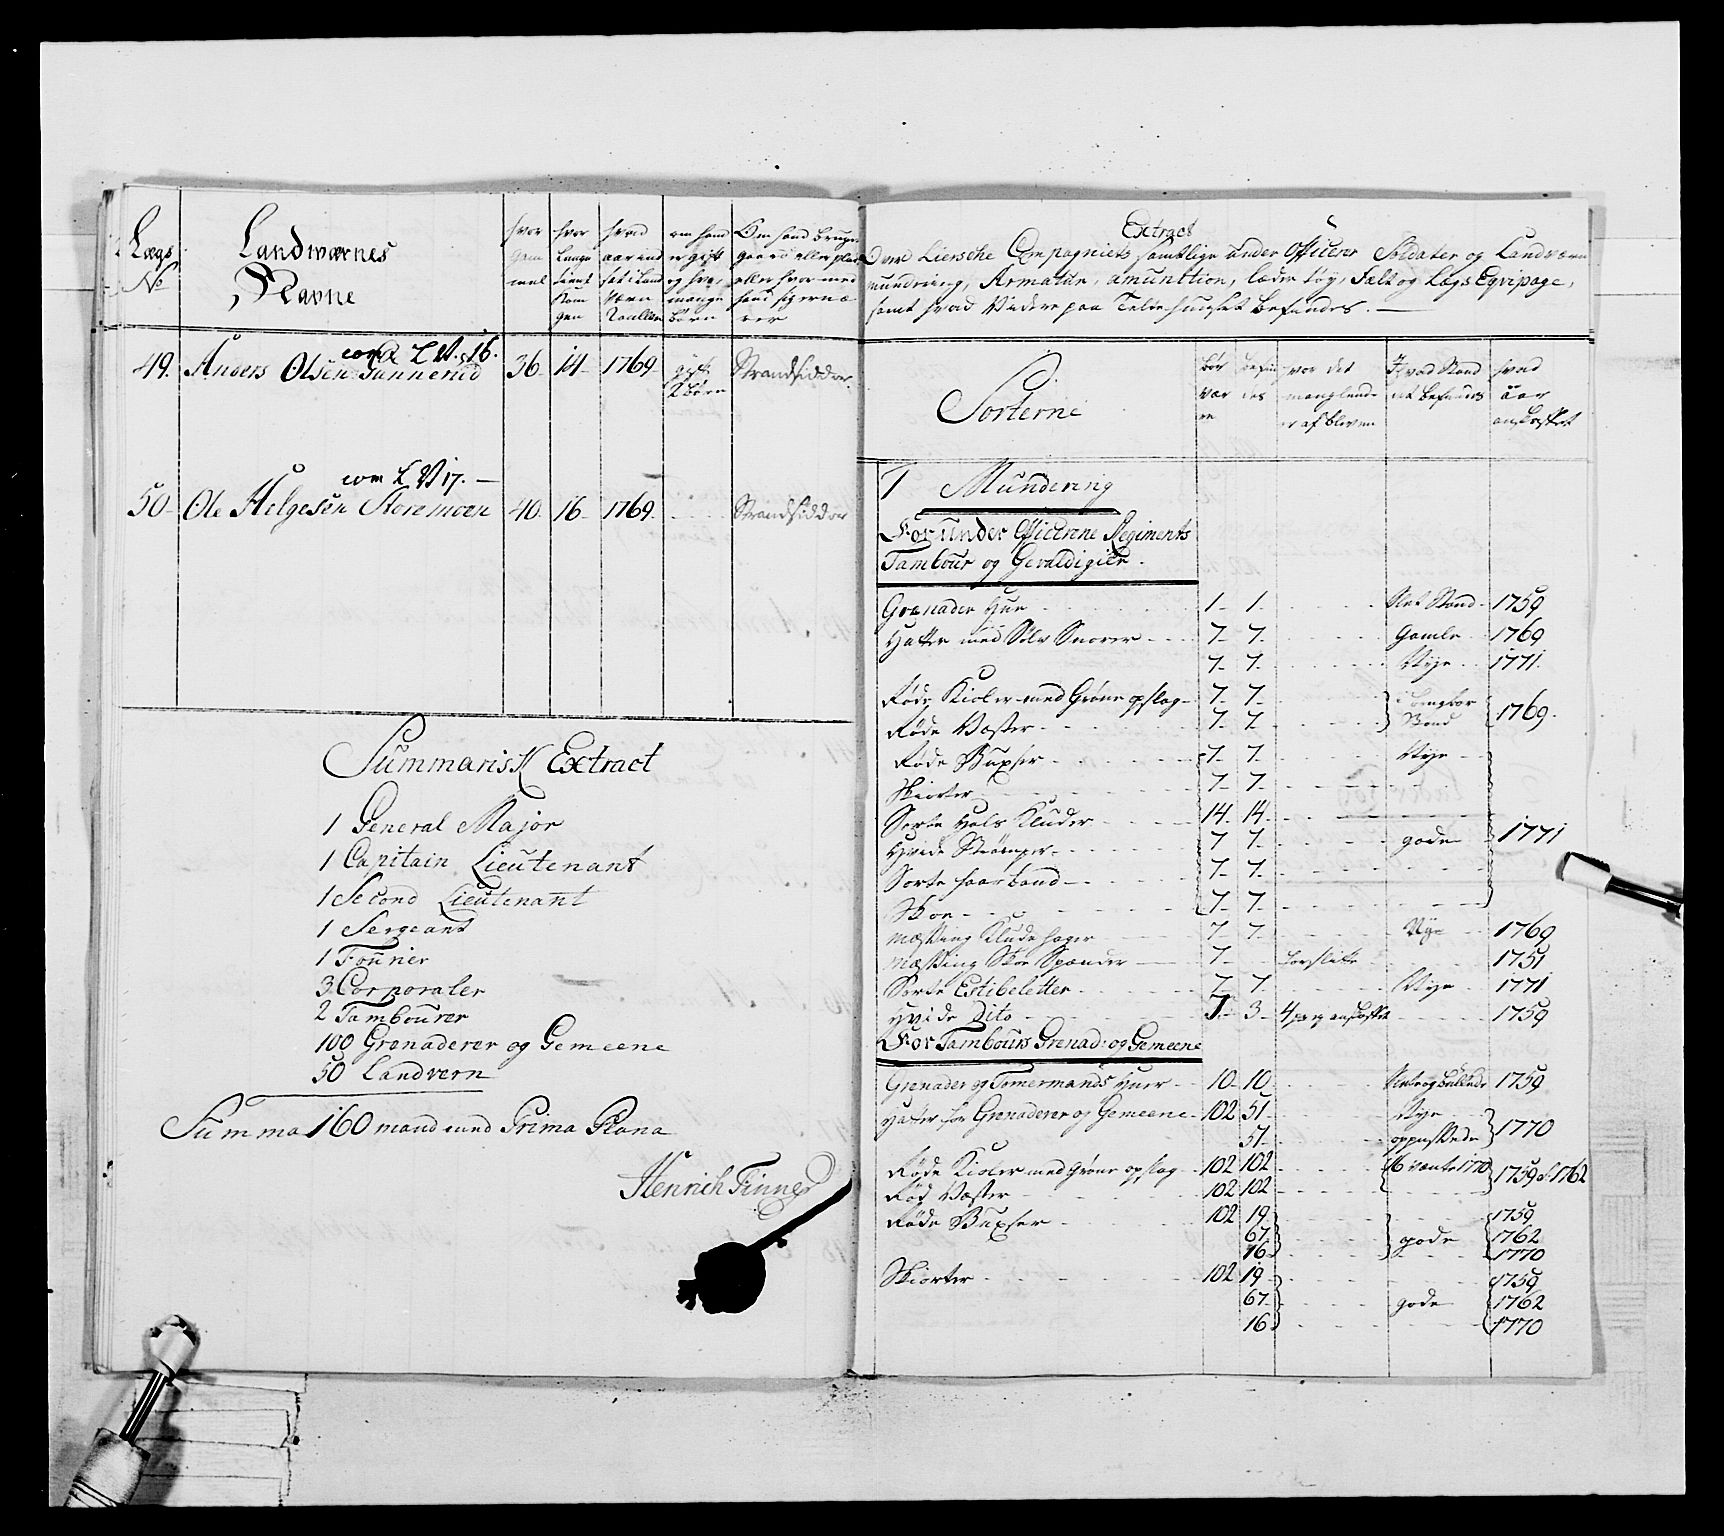 Lægs
No
Landwærnes
Navne
hvor
gam
mel
hvor
Længe
tient
Kon
gen
hvad
aar ind
sat i Land
Værn
Roullen
om hand
er gift
og hvor
mange
børn
Om hand bruger
gaard eller plads
eller hvor med
hand sig ernæ
rer
com L V. 16.
49. Anders Olsen Gunnerud 36 14 1769 gift 2 børn Strandsidder
com L V 17.
50 Ole Helgesen Storemoen 40 16 1769 Strandsidder
Summarisk Extract
1 General Major
1 Capitain Lieutenant
1 Second Lieutenant
1 Sergeant
1 Fourier
3 Corporaler
2 Tambourer
100 Grenaderer og Gemeene
50 Landvern
Summa 160 mand med Prima Plana
Henrich Finne
Extract
Over Liersche Compagniets samtlige under Officerer Soldater og Landværn
mundering, Armatur, amunition, læder tøy, Felt og Lægs Eqvipage,
samt hvad Videre paa Telthuuset befindes.
Sorterne
bør
være
befin
des
hvor det
manglende
er af bleven
Hvad Stand
det befindes
hvad
aar
anskaffet
1 Mundering
For under Officerne Regiments
Tambour og Gevaldigier.
Grenader Hue 1 1 Slet Stand 1759
Hatte med Sølv Snorer 7 7 Gamle 1769
7 7 Nye 1771
Røde Kioler med Grøne opslag 7 7
Røde Væster 7 7 Stand 1769
Røde Buxser 7 7 Nye
Skiorter 7 7
Sorte Hals Kluder 14 14
Hvide Strømper 7 7 gode 1771
Sorte haarbaand 7 7
Skoe 7 7
Messing Klude hager 7 7 Nye 1769
Messing Skoe Spænder 7 forslitte 1751
Sorte Estibeletter 7 7 Nye 1771
Hvide Dito 7 3 4 par ej anskaffet 1759
For Tambours Grenad: og Gemeene
Grenader og Tømermands Huer 10 10 1759
Hatter for Grenaderer og Gemeene 102 51 Nye
51 1770
Røde Kioler med Grøne opslag 102 102 1759 & 1762
Rød Væster 102 102
Røde Buxser 102 19 1759
67 gode 1762
16 1770
Skiorter 102 19 1759
67 gode 1762
16 1770